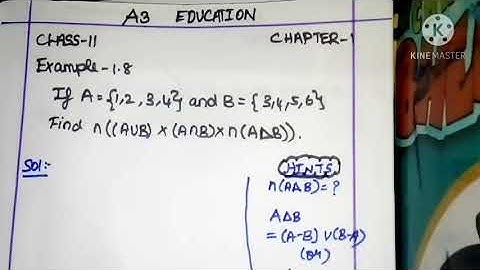 A3 EDUCATION
CLASS-11 CHAPTER-1
KINEMASTER
Example-1.8
If A={1,2,3,4} and B={3,4,5,6}
Find n((AUB)×(A∩B)×n(AΔB)).
Sol:-
HINTS
n(AΔB)=?
AΔB
=(A-B)∪(B-A)
(or)